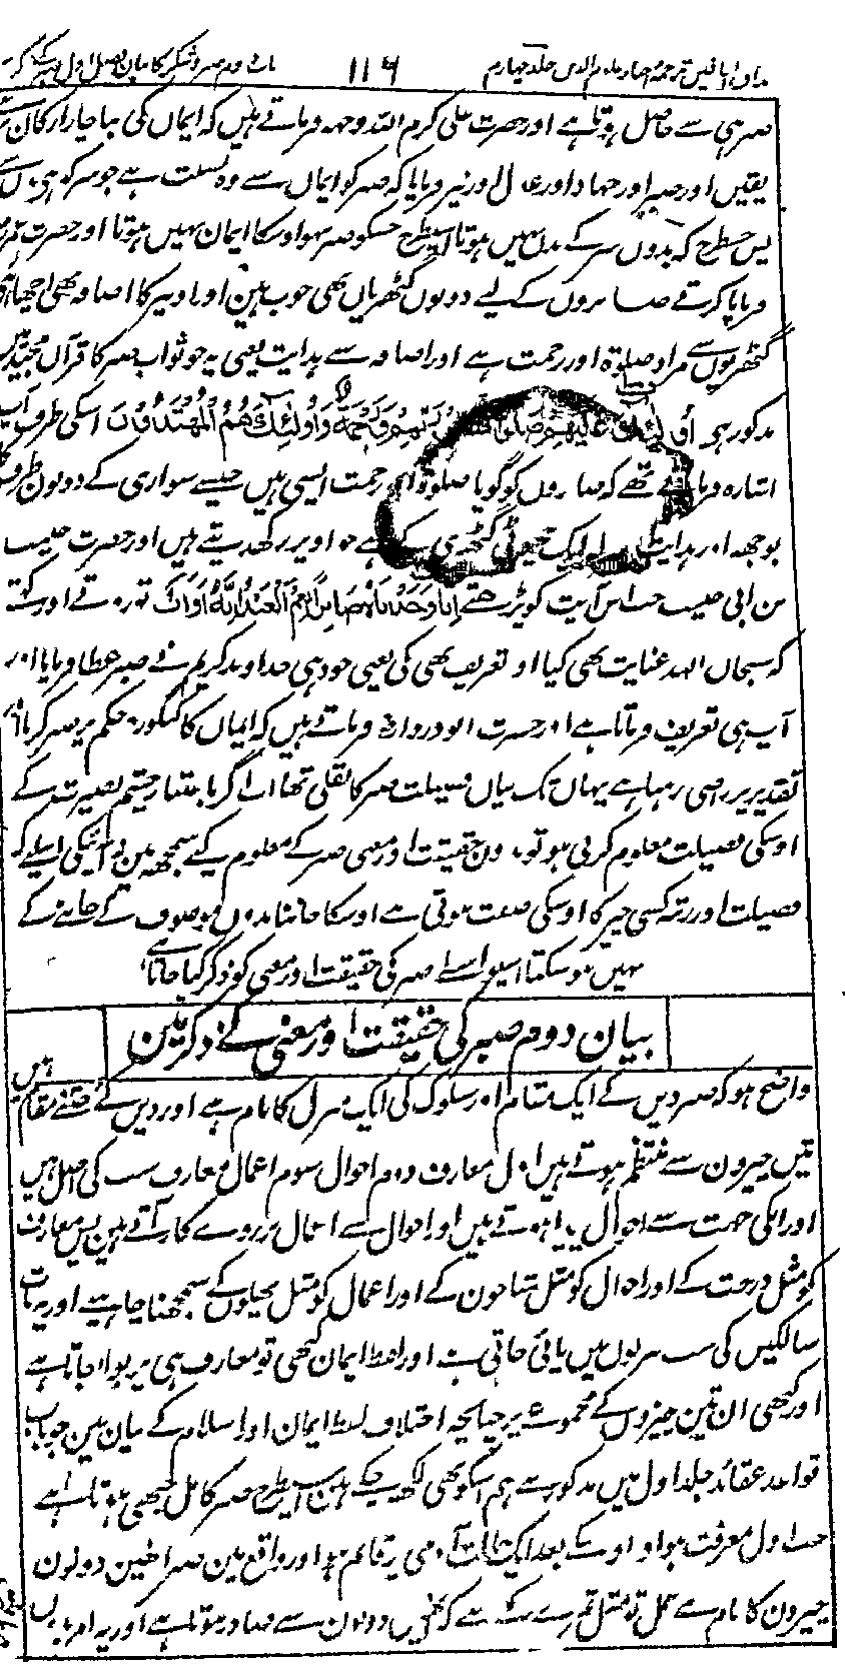 مذاق العارفین ترجمہ احیاء علوم الدین جلد چہارم ۱۱۶ باب دوم صبر و شکر کا بیان فصل اول صبر کے ذکر
صبر ہی سے حاصل ہوتا ہے اور حضرت علی کرم اللہ وجہہ فرماتے ہیں کہ ایمان کی بنا چار ارکان
یقین اور صبر اور جہاد اور عدل اور نیز فرمایا کہ صبر کو ایمان سے وہ نسبت ہے جو سر کو ہی بدن سے
پس جسطرح کہ بدون سر کے بدن نہیں ہوتا اسیطرح جسکو صبر نہو اوسکا ایمان نہیں ہوتا اور حضرت عمر
فرمایا کرتے صابروں کے لیے دونوں گٹھریاں بھی خوب ہین اور اوپر کا اضافہ بھی اچھا
گٹھریوں سے مراد صلوۃ اور رحمت ہے اور اضافہ سے ہدایت یعنی یہ جو ثواب صبر کا قرآن مجید میں
مذکور ہی أُولٰئِكَ عَلَيْهِمْ صَلَوَاتٌ مِنْ رَبِّهِمْ وَرَحْمَةٌ وَأُولٰئِكَ هُمُ الْمُهْتَدُونَ اسکی طرف آپ
اشارہ فرماتے تھے کہ صابروں کو گویا صلوۃ اور رحمت ایسی ہیں جیسے سواری کے دونوں طرف کا
بوجھ اور ہدایت ایک چھوٹی گٹھری ہے جو اوپر رکھدیتے ہیں اور حضرت حبیب
بن ابی حبیب جب اس آیت کو پڑھتے إِنَّا وَجَدْنَاهُ صَابِرًا نِعْمَ الْعَبْدُ إِنَّهُ أَوَّابٌ تو روتے اور کہتے
کہ سبحان اللہ عنایت بھی کیا اور تعریف بھی کی یعنی خود ہی خداوند کریم نے صبر عطا فرمایا اور
آپ ہی تعریف فرماتا ہے اور حضرت ابو درداء فرماتے ہیں کہ ایمان کا کنگورہ حکم پر صبر کرنا اور
تقدیر پر راضی رہنا ہے یہاں تک بیان فضیلت صبر کا نقلی تھا اب اگر باعتبار چشم بصیرت کے
اوسکی فضیلت معلوم کرنی ہو تو بدون حقیقت اور معنی صبر کے معلوم کیے سمجھ مین نہ آئیگی اسلیے کہ
فضیلت اور رتبہ کسی چیز کا اوسکی صفت ہوتی ہے اوسکا جاننا بدون موصوف کے جاننے کے
نہیں ہوسکتا اسیواسطے صبر کی حقیقت اور معنی کو ذکر کیا جاتا ہے
بیان دوم صبر کی حقیقت اور معنی کے ذکر مین
واضح ہو کہ صبر دین کے ایک مقام اور سلوک کی ایک منزل کا نام ہے اور دین کے جتنے مقام ہیں
تین چیزون سے منتظم ہوتے ہیں اول معارف دوم احوال سوم اعمال معارف سب کی اصل ہیں
اور انکی جہت سے احوال پیدا ہوتے ہیں اور احوال سے اعمال بر روے کار آتے ہین پس معارف
کو مثل درخت کے اور احوال کو مثل شاخون کے اور اعمال کو مثل پھلوں کے سمجھنا چاہیے اور یہ بات
سالکین کی سب منزلوں میں پائی جاتی ہے اور لفظ ایمان کبھی تو معارف ہی پر بولا جاتا ہے
اور کبھی ان تین چیزوں کے مجموعے پر چنانچہ اختلاف لفظ ایمان اور اسلام کے بیان مین جو باب
قواعد عقائد جلد اول میں مذکور ہے ہم اسکو بھی لکھ چکے ہین اسیطرح صبر کامل جبھی ہوتا ہے
جب اول معرفت ہو اور اوسکے بعد ایک حالت آدمی پر قائم ہو اور واقع مین صبر انھین دونون
چیزون کا نام ہے عمل تو مثل ثمرے کے ہے کہ انھیں دونون سے صادر ہوتا ہے اور یہ امر بدون